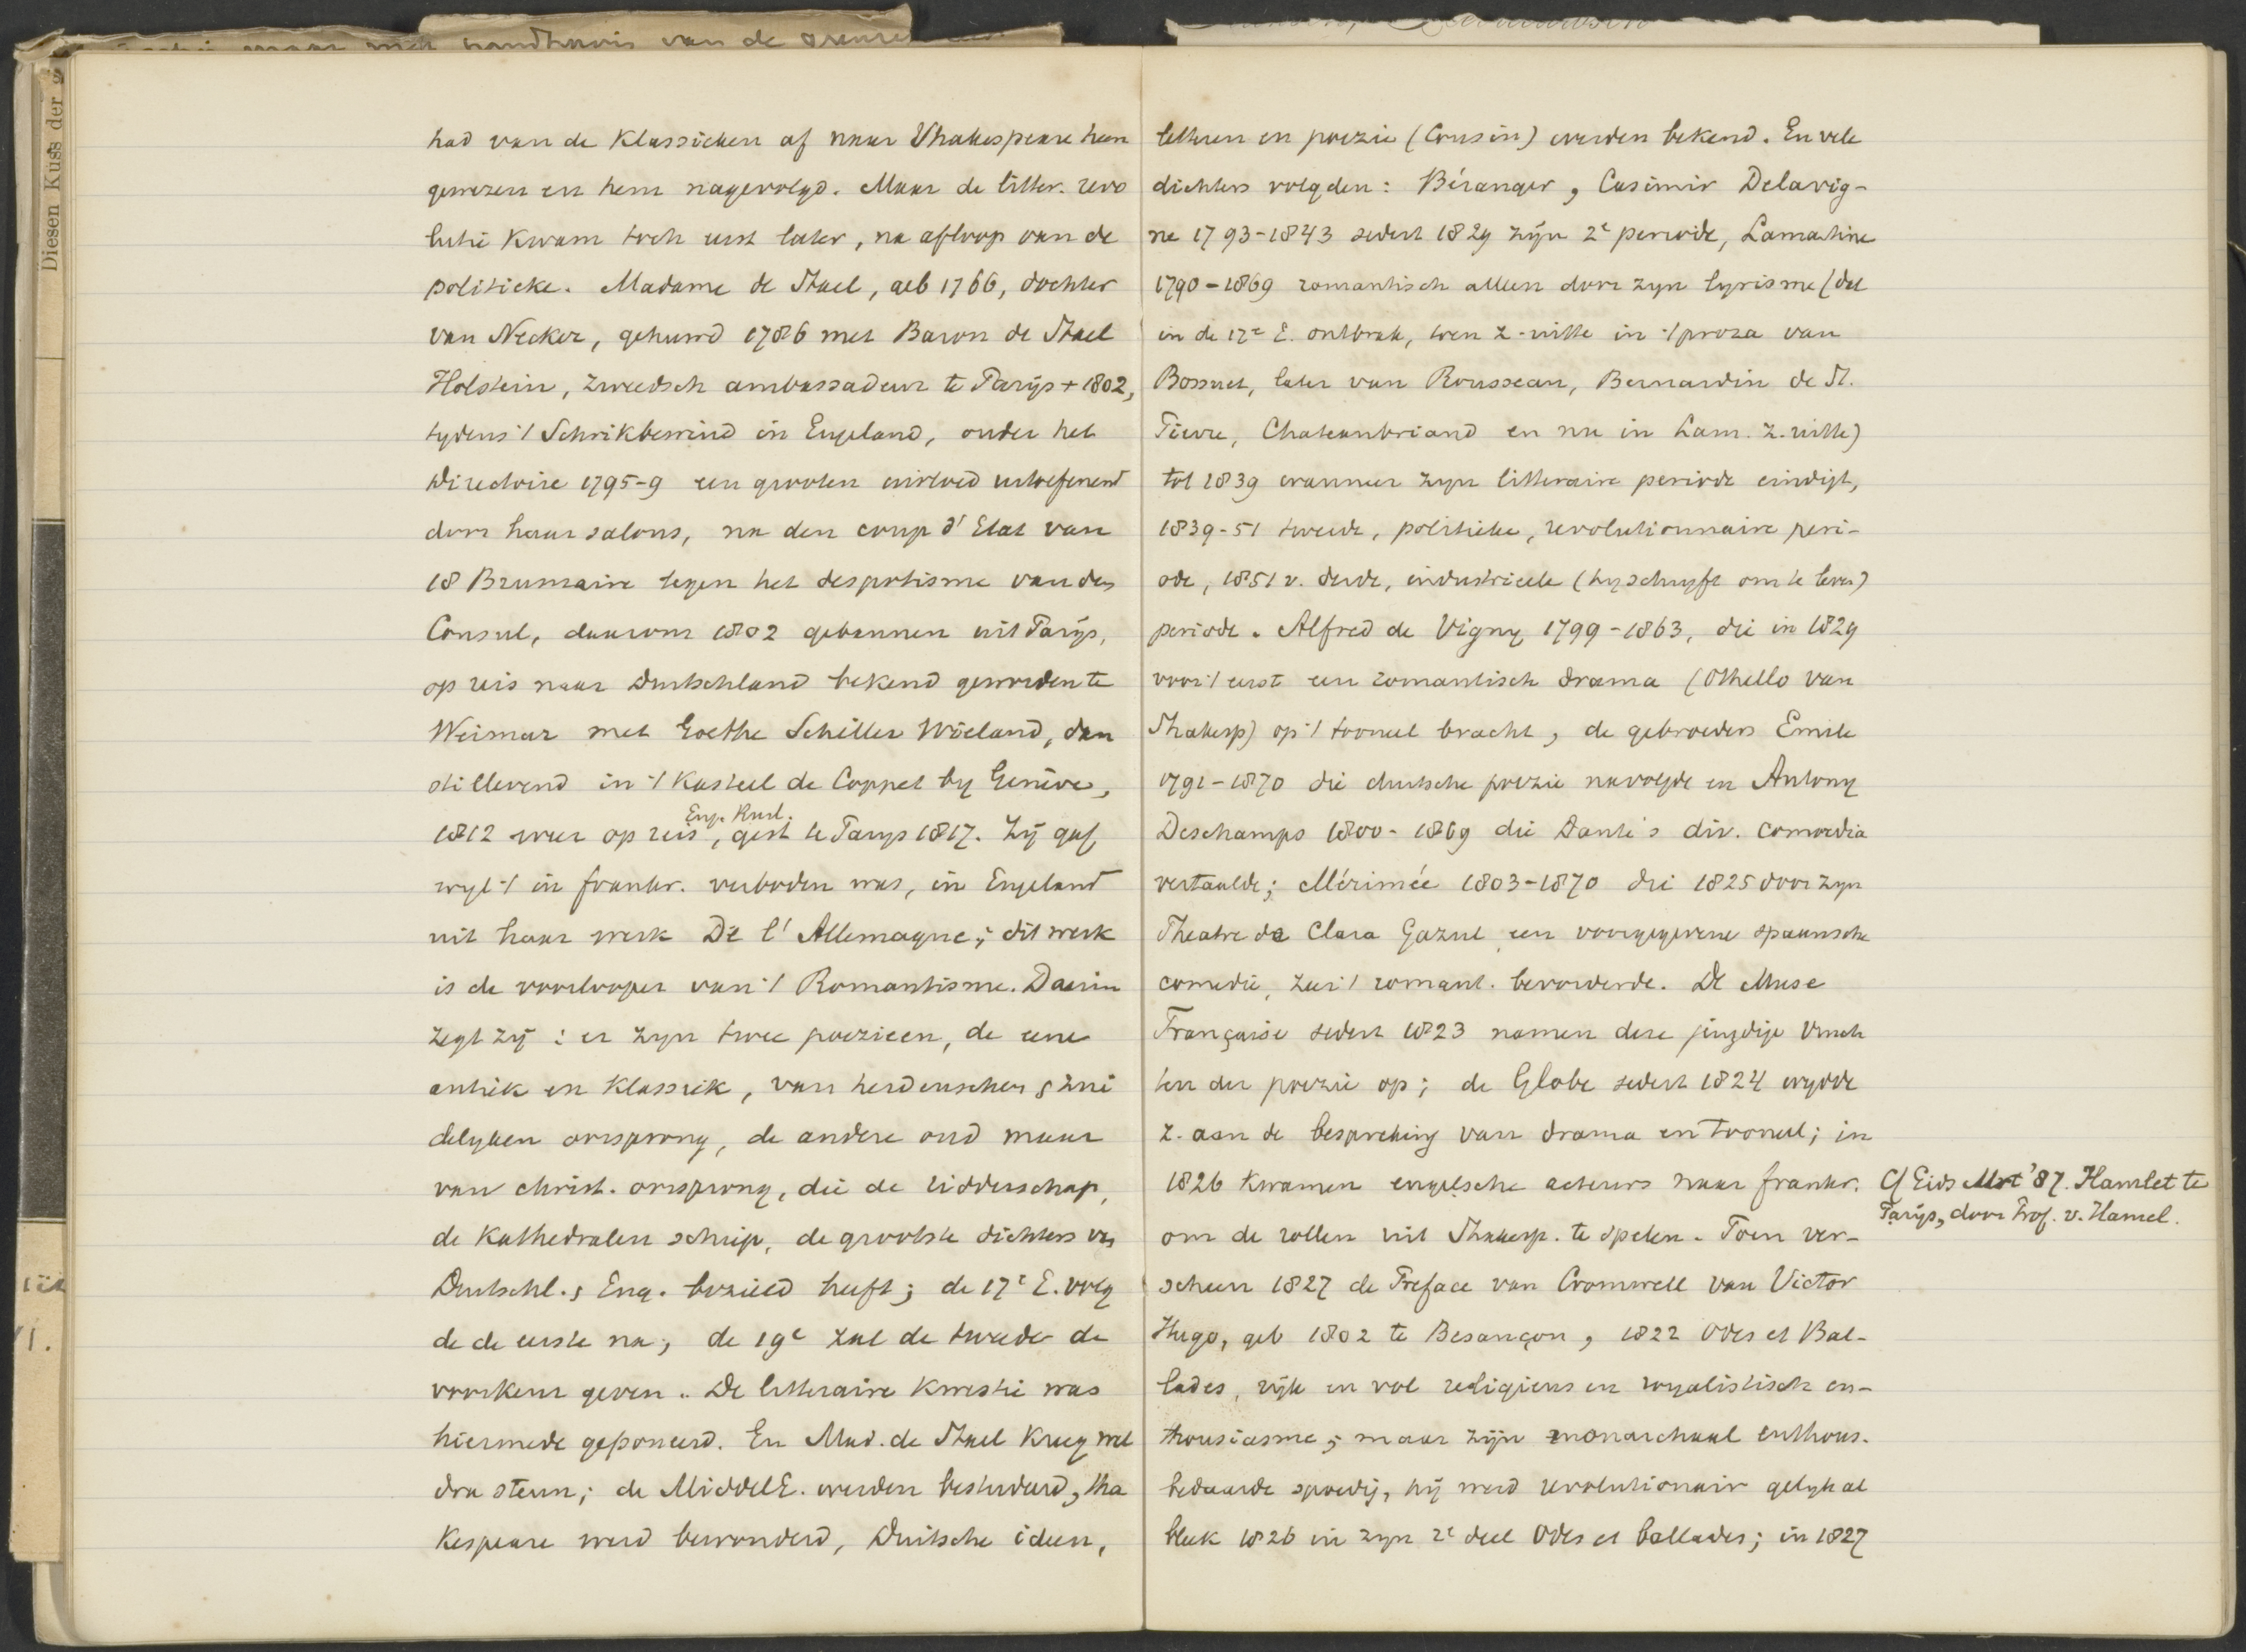 maar men handhavis van de
Diesen Kuss der
had van de Klassieken af naar Shakespeare heen
gewezen en hem nagevolgd. Maar de litter. revo
lutie kwam toch eerst later, na afloop van de
politieke. Madame de Stael, geb 1766, dochter
van Necker, gehuwd 1786 met Baron de Stael
Holstein, zweedsch ambassadeur te Parijs + 1802,
tydens 't Schrikbewind in Engeland, onder het
Directoire 1795-9 een grooten invloed uitoefenend
door haar salons, na den coup d'Etat van
18 Brumaire tegen het despotisme van den
Consul, daarom 1802 gebannen uit Parijs,
op reis naar Duitschland bekend geworden te
Weimar met Goethe Schiller Wieland, dan
stillevend in 't Kasteel de Coppet by Genève,
Eng. Rusl.
1812 weer op reis, gest te Parys 1817. Zij gaf
wyl 't in frankr. verboden was, in Engeland
uit haar werk De l'Allemagne; dit werk
is de voorlooper van 't Romantisme. Daarin
zegt zij : er zyn twee poezieen, de eene
antiek en klassiek, van heidenschen & zui
delyken oorsprong, de andere oud maar
van christ. oorsprong, die de ridderschap,
de Kathedralen schiep, de grootste dichters van
Duitschl. & Eng. bezield heeft; de 17e E. volg
de de eerste na; de 19e zal de tweede de
voorkeur geven. De litteraire kwestie was
hiermede geponeerd. En Mad. de Stael kreeg wel
dra steun; de MiddelE. werden bestudeerd, Sha
kespeare werd bewonderd, Duitsche ideen,
letteren en poezie (Cousin) werden bekend. En vele
dichters volgden: Béranger, Casimir Delavig-
ne 1793-1843 sedert 1829 zijn 2e periode, Lamartine
1790-1869 romantisch alleen door zyn lyrisme (dat
in de 17e E. ontbrak, toen z. uitte in 't proza van
Bossuet, later van Rousseau, Bernardin de St.
Pierre, Chateaubriand en nu in Lam. z. uitte)
tot 1839 wanneer zyn litteraire periode eindigt,
1839-51 tweede, politieke, revolutionnaire peri-
ode, 1851 v. derde, industrieele (hy schryft om te leven)
periode. Alfred de Vigny 1799-1863, die in 1829
voor 't eerst een romantisch drama (Othello van
Shakesp) op 't tooneel bracht, de gebroeders Emile
1791-1870 die duitsche poezie navolgde en Antony
Deschamps 1800-1869 die Dante's div. comoedia
vertaalde; Mérimée 1803-1870 die 1825 door zyn
Theatre de Clara Gazul een voorgegevene spaansche
comedie, zeer 't romant. bevorderde. De Muse
Française sedert 1823 namen deze jeugdige vruch
ten der poezie op; de Globe sedert 1824 wydde
z. aan de bespreking van drama en tooneel; in
1826 kwamen engelsche acteurs naar frankr.
om de rollen uit Shakesp. te spelen. Toen ver-
scheen 1827 de Preface van Cromwell van Victor
Hugo, geb 1802 te Besançon, 1822 Odes et Bal-
lades, rijk en vol religieus en royalistisch en-
thousiasme; maar zijn monarchaal enthous.
bedaarde spoedig, hij werd revolutionair gelyk al
bleek 1826 in zyn 2e deel Odes et ballades; in 1827
Cf Gids Mrt '87. Hamlet te
Parijs, door Prof. v. Hamel.